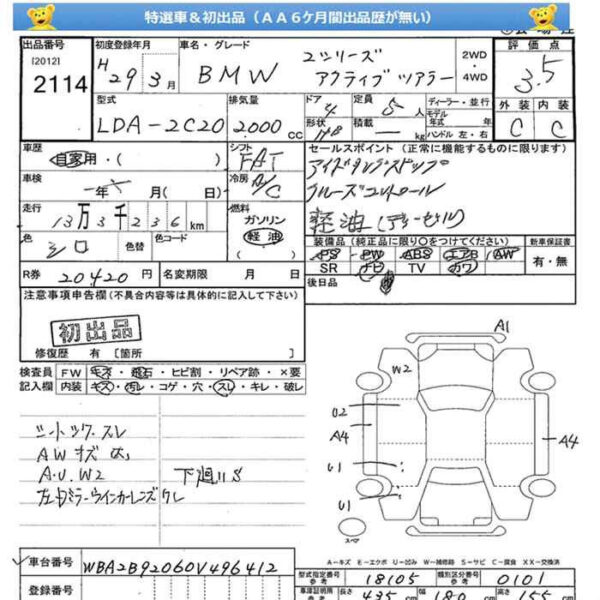 特選車&初出品(AA6ケ月間出品歴が無い)
出品番号 初度登録年月 車名・グレード 2WD・4WD 評価点
[2012] 2114 H 29 3月 BMW 2シリーズ アクティブツアラー 3.5
型式 排気量 ドア 定員 ディーラー・並行 外装 内装
LDA-2C20 2000cc 4 5人 モデル年式 年 C C
形状 H/B 積載 kg ハンドル 左・右
車歴 自家用・( ) シフト FAT セールスポイント(正常に機能するものに限ります)
車検 年 月( 日) 冷房 A/C アイドリングストップ
クルーズコントロール
走行 13万3千236km 燃料 ガソリン 軽油 軽油(ディーゼル)
色 シロ 色替 色コード 装備品(純正品に限り○をつけてください) 新車保証書
PS・PW・ABS・エアB・AW 有・無
SR ナビ TV カワ
R券 20420円 名変期限 月 日 後日品
注意事項申告欄(不具合内容等は具体的に記入して下さい)
初出品
修復歴 有 [箇所 ]
検査員 FW キズ・飛石・ヒビ割・リペア跡・×要
記入欄 内装 キズ・汚レ・コゲ・穴・スレ・キレ・破レ
シートツメ スレ
AWキズ 大
A.U.W2 下廻りS
左ドアミラーウインカーレンズワレ
A1
W2
U2
A4
A4
U1
U1
スペア
A−キズ E−エクボ U−凹み W−補修跡 S−サビ C−腐食 XX−交換済
車台番号 WBA2B92060V496412
型式指定番号 参考 18105 類別区分番号 参考 0101
登録番号 車庫証明用 参考 長さ 435cm 幅 180cm 高さ 155cm